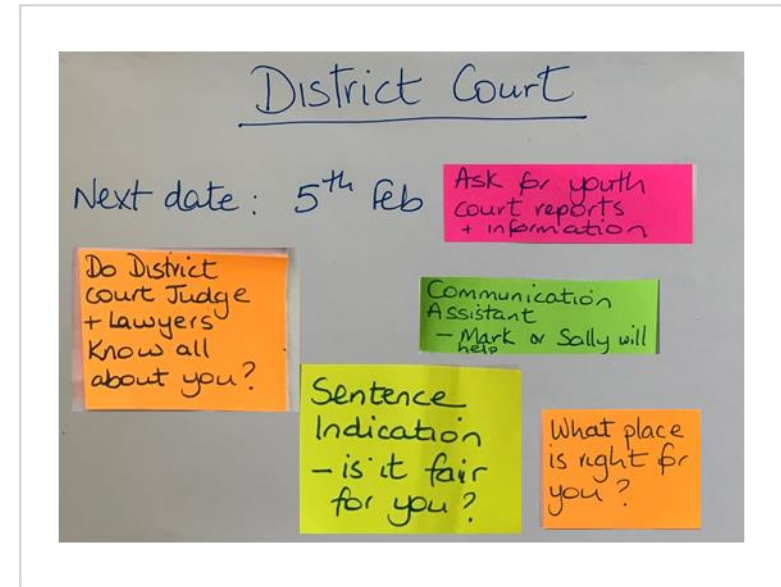 District Court
Next date: 5th Feb
Ask for youth
court reports
+ information
Do District
court Judge
+ Lawyers
Know all
about you?
Communication
Assistant
- Mark or Sally will
help
Sentence
Indication
- is it fair
for you?
What place
is right for
you?